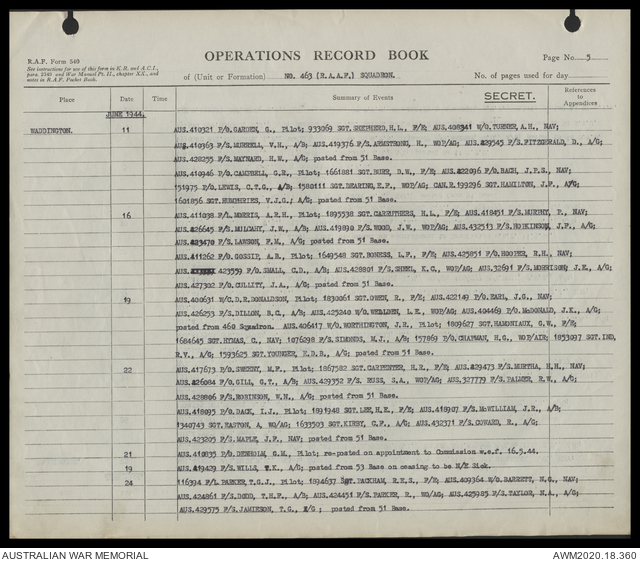 R.A.F. Form 540
See instructions for use of this form in K.R. and A.C.I.,
para. 2349 and War Manual Pt. II., chapter XX., and
notes in R.A.F. Pocket Book.
OPERATIONS RECORD BOOK
Page No. 5
of (Unit or Formation) NO. 463 (R.A.A.F.) SQUADRON.
No. of pages used for day
Place Date Time Summary of Events SECRET. References to Appendices
JUNE 1944.
WADDINGTON. 11 AUS.410321 P/O.GARDEN, G., Pilot; 933069 SGT.SHEPHERD,H.L., F/E; AUS.408341 W/O.TURNER,A.H., NAV;
AUS.410363 F/S.MURRELL, V.H., A/B; AUS.419376 F/S.ARMSTRONG, H., WOP/AG; AUS.429545 F/S.FITZGERALD, D., A/G;
AUS.428255 F/S.MAYNARD, H.W., A/G; posted from 51 Base.
AUS.410946 P/O.CAMPBELL, G.R., Pilot; 1661881 SGT.BURR, D.W., F/E; AUS.422096 P/O.BACH, J.P.S., NAV;
151975 P/O.LEWIS, C.T.G., A/B; 1580111 SGT.DEARING,E.F., WOP/AG; CAN.R.199296 SGT.HAMILTON, J.F., A/G;
1601856 SGT.HUMPHRIES, V.J.G.; A/G; posted from 51 Base.
16 AUS.411038 F/L.MORRIS, A.R.H., Pilot; 1895538 SGT.CARRUTHERS, H.L., F/E; AUS.418451 F/S.MURPHY, P., NAV;
AUS.426645 F/S.MULCAHY, J.W., A/B; AUS.419890 F/S.WOOD, J.W., WOP/AG; AUS.432513 F/S.HOPKINSON, J.F., A/G;
AUS.423470 F/S.LAWSON, F.M., A/G; posted from 51 Base.
AUS.411262 F/O.GOSSIP, A.B., Pilot; 1649548 SGT.BONESS, L.F., F/E; AUS.425851 F/O.HOOPER, R.H., NAV;
AUS. 423559 F/O.SMALL, C.D., A/B; AUS.428801 F/S.SHEEL, K.C., WOP/AG; AUS.32691 F/S.MORRISON, J.E., A/G;
AUS.427302 F/O.CULLITY, J.A., A/G; posted from 51 Base.
19 AUS.400631 W/C.D.R.DONALDSON, Pilot; 1830061 SGT.OWEN, R., F/E; AUS.422149 P/O.EARL, J.G., NAV;
AUS.426253 F/S.DILLON, B.C., A/B; AUS.425240 W/O.WELLDEN, L.E., WOP/AG; AUS.404469 P/O.McDONALD, J.K., A/G;
posted from 460 Squadron. AUS.406417 W/O.WORTHINGTON, J.H., Pilot; 1809627 SGT.HAMONIAUX, G.W., F/E;
1684645 SGT.HYMAS, C., NAV; 1076298 F/S.SIMONDS, M.J., A/B; 157869 P/O.CHAPMAN, H.G., WOP/AIR; 1853097 SGT.IND,
R.V., A/G; 1593625 SGT.YOUNGER, E.D.B., A/G; posted from 51 Base.
22 AUS.417673 P/O.SWEENY, M.F., Pilot; 1867582 SGT.CARPENTER, H.R., F/E; AUS.429473 F/S.MURTHA, H.H., NAV;
AUS.426084 F/O.GILL, G.T., A/B; AUS.429352 F/S.HUSS, S.A., WOP/AG; AUS.327779 F/S.PALMER, R.W., A/G;
AUS.428806 F/S.ROBINSON, W.N., A/G; posted from 51 Base.
AUS.418095 P/O.DACK, I.J., Pilot; 1891948 SGT.LEE,H.E., F/E; AUS.418907 F/S.McWILLIAM, J.R., A/B;
1340743 SGT.EASTON, A, WO/AG; 1633503 SGT.KIRBY, C.F., A/G; AUS.432371 F/S.COWARD, R., A/G;
AUS.423205 F/S.MAPLE, J.F., NAV; posted from 51 Base.
21 AUS.410035 P/O.DENHOLM, G.M., Pilot; re-posted on appointment to Commission w.e.f. 16.5.44.
19 AUS.419429 F/S.WILLS, T.K., A/G; posted from 53 Base on ceasing to be N/E Sick.
24 116394 F/L.PARKER,T.G.J., Pilot; 1894637 SGT.PACKHAM, R.E.S., F/E; AUS.409364 W/O.BARRETT, N.G., NAV;
AUS.424861 F/S.DODD, T.H.F., A/B; AUS.424451 F/S.PARKER, R., WO/AG; AUS.425985 F/S.TAYLOR, N.A., A/G;
AUS.429575 F/S.JAMIESON, T.G., A/G ; posted from 51 Base.
AUSTRALIAN WAR MEMORIAL
AWM2020.18.360